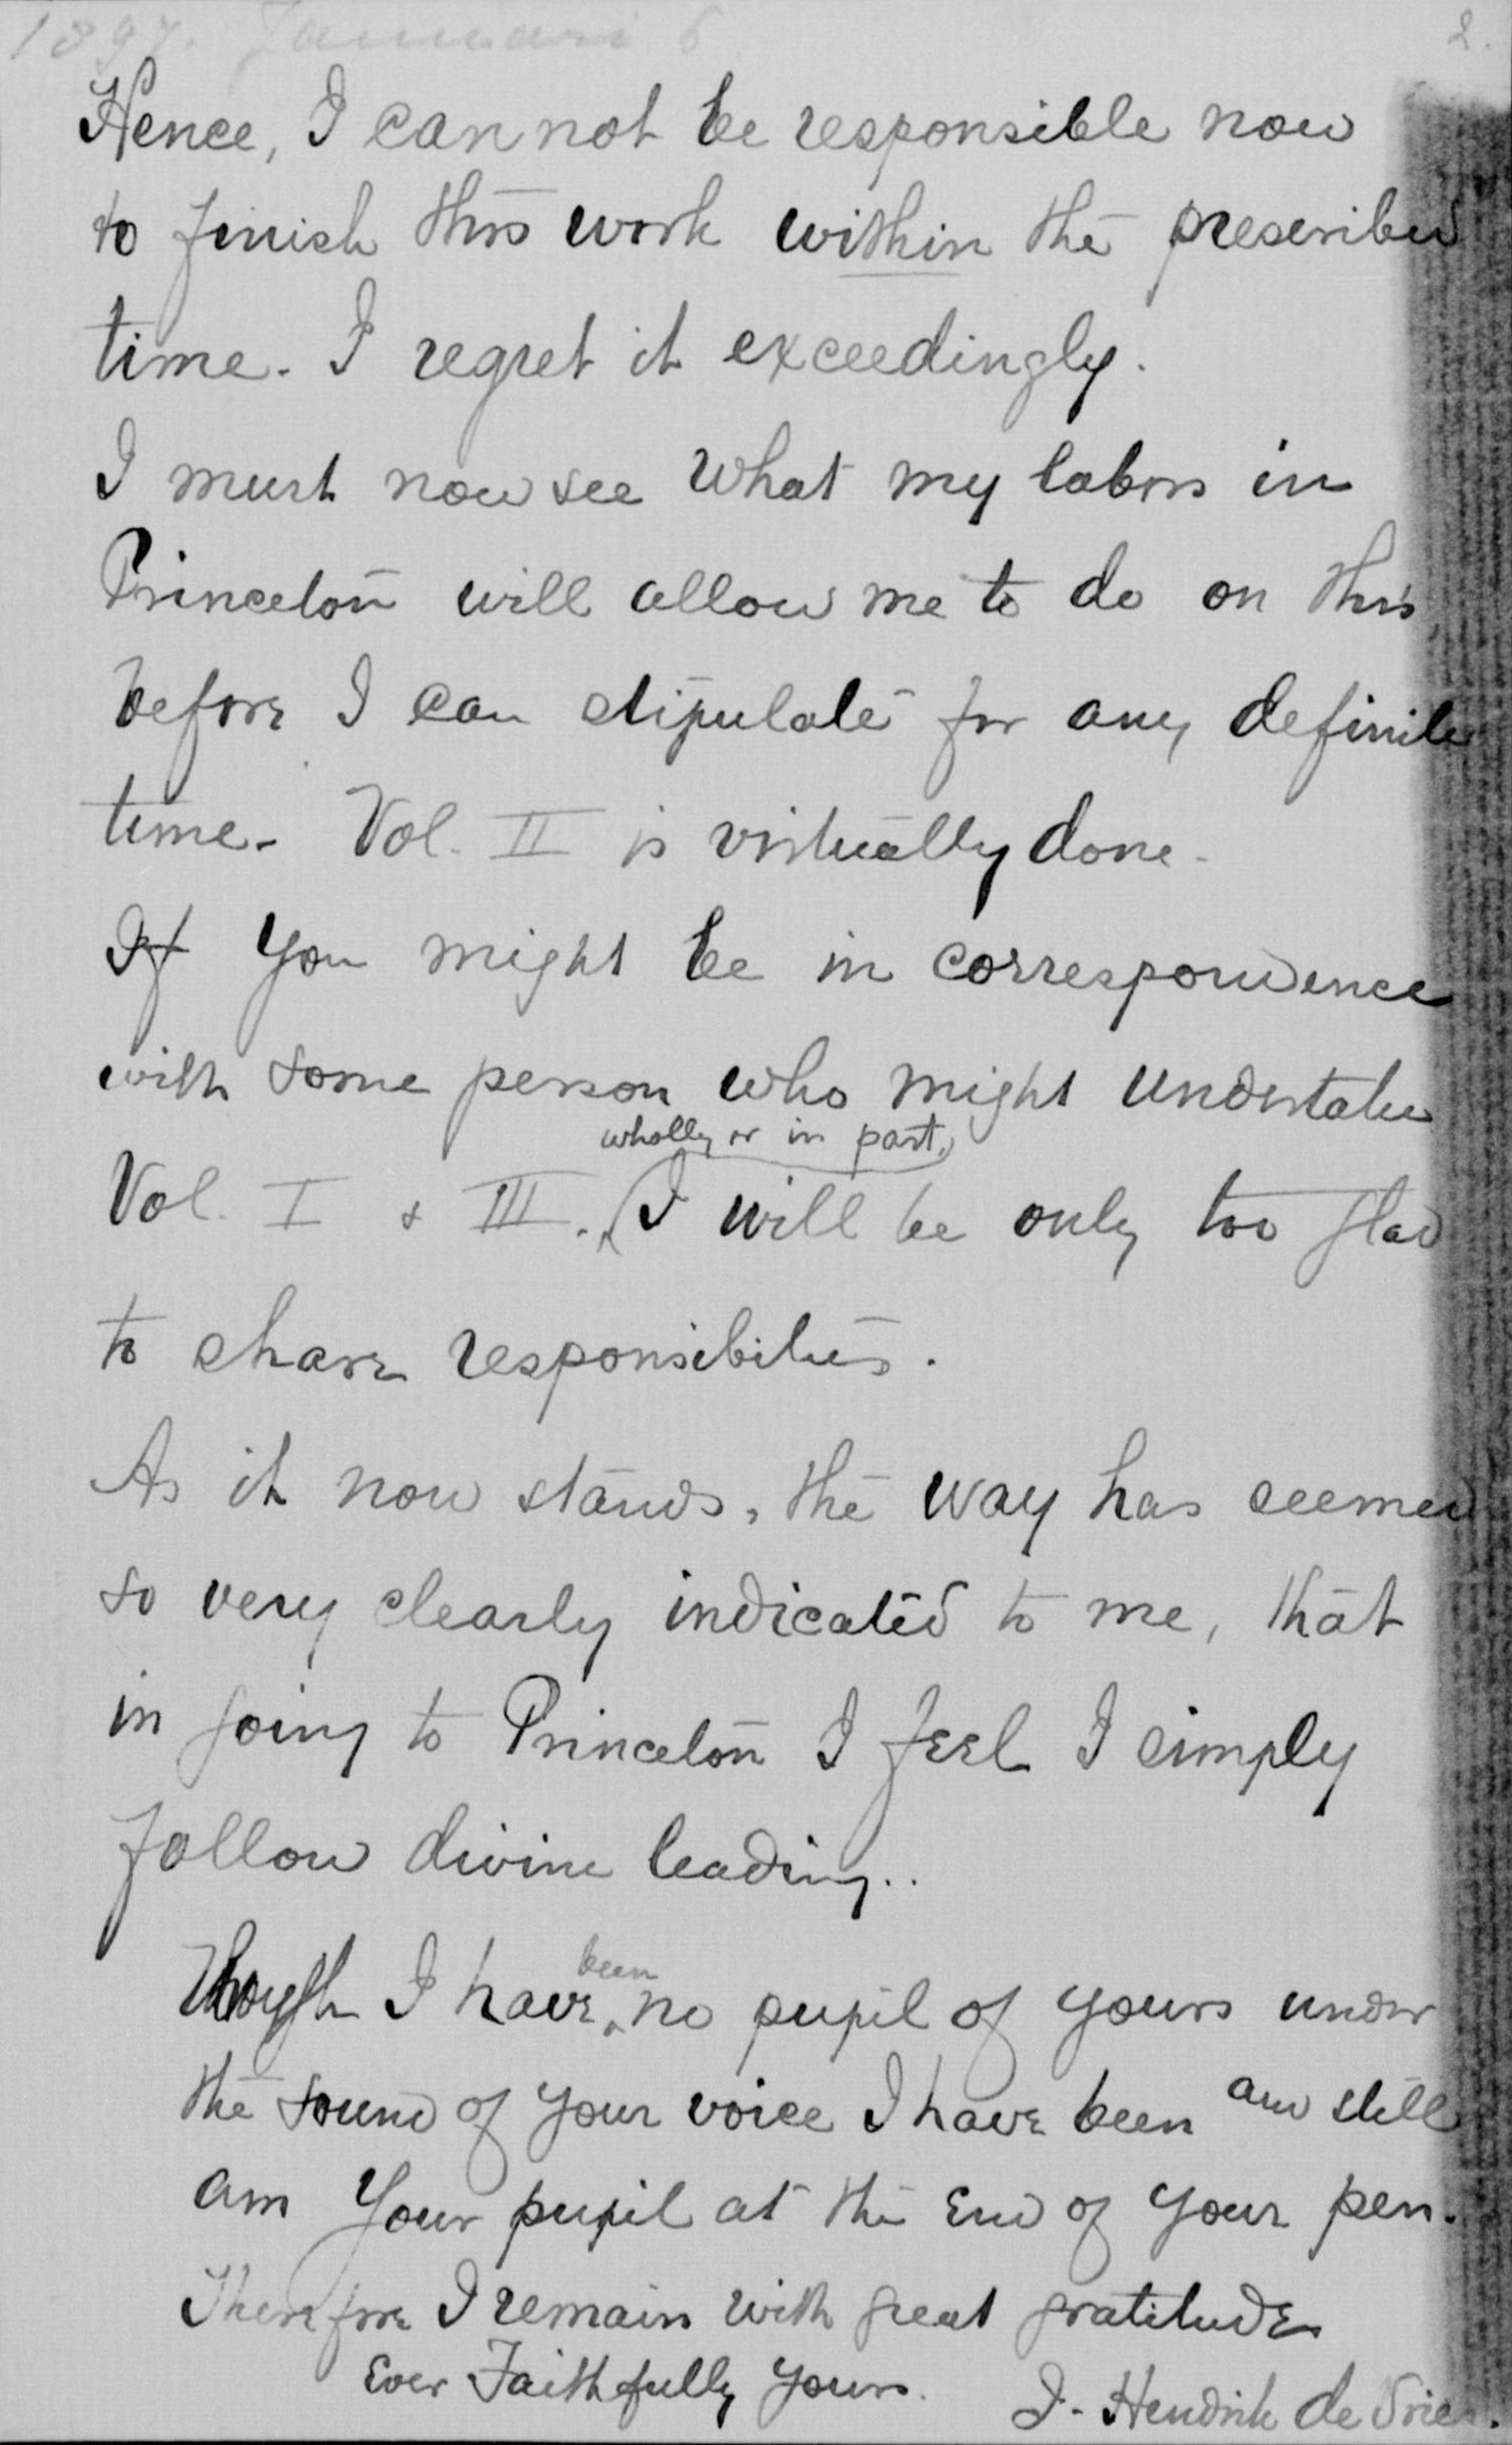 1897. Januari 6
2.
Hence, I can not be responsible now
to finish this work within the prescribed
time. I regret it exceedingly.
I must now see what my labors in
Princeton will allow me to do on this,
before I can stipulate for any definite
time. Vol. II is virtually done.
If you might be in correspondence
with some person who might undertake
wholly or in part,
Vol. I & III. I will be only too glad
to share responsibilities.
As it now stands, the way has seemed
so very clearly indicated to me, that
in going to Princeton I feel I simply
follow divine leading..
been
Though I have no pupil of yours under
the sound of your voice I have been and still
am your pupil at the end of your pen.
Therefore I remain with great gratitude
Ever Faithfully yours.
J. Hendrik de Vries.